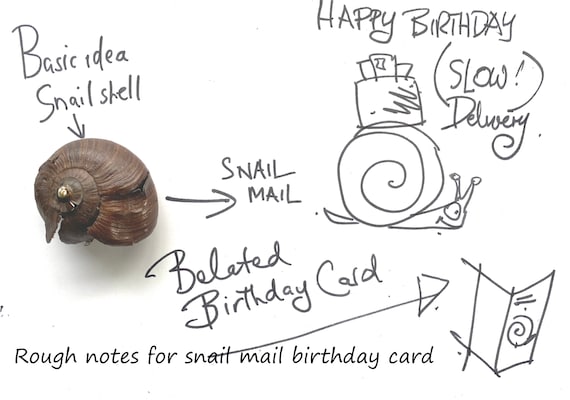 Basic idea
Snail shell
SNAIL
MAIL
HAPPY BIRTHDAY
(SLOW!)
Delivery.
Belated
Birthday Card
Rough notes for snail mail birthday card